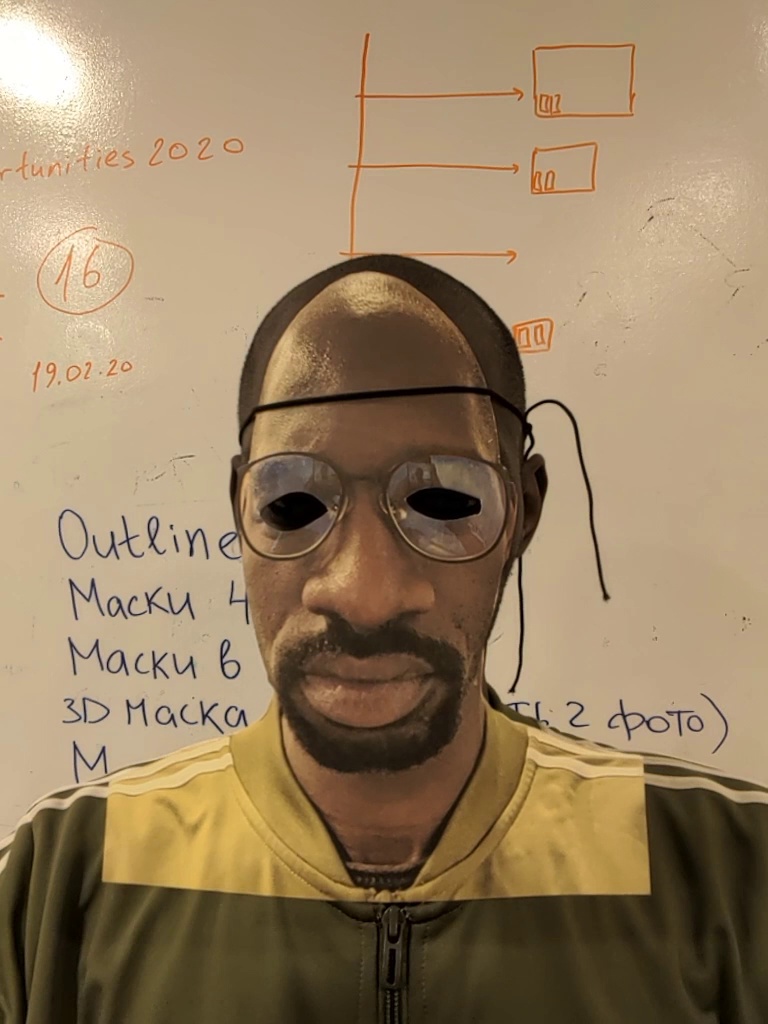 rtunities 2020
16
19.02.20
Outline
Маски 4
Маски в
3D маска ть 2 фото)
М